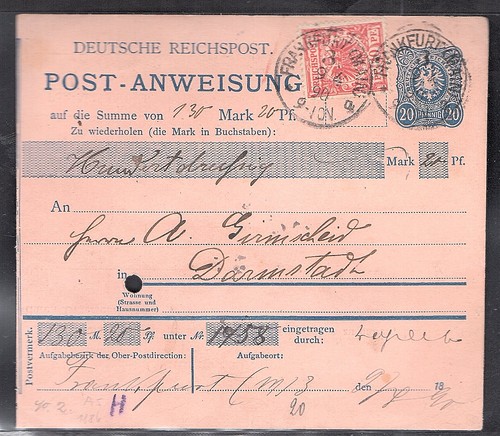 DEUTSCHE REICHSPOST.
POST-ANWEISUNG
FRANKFURT (MAIN)
3
9-10N.
FRANKFURT (MAIN)
3
20 PFENNIG 20
auf die Summe von 130 Mark 20 Pf.
Zu wiederholen (die Mark in Buchstaben):
Hundertdreissig Mark 20 Pf.
An
Herrn A. Girmscheid
in Darmstadt
Wohnung
(Strasse und
Hausnummer)
Postvermerk.
130 M. 20 Pf. unter Nr. 1458 eingetragen
durch:
Aufgabebezirk der Ober-Postdirection: Aufgabeort:
Frankfurt (M) 3 den 18
20
H